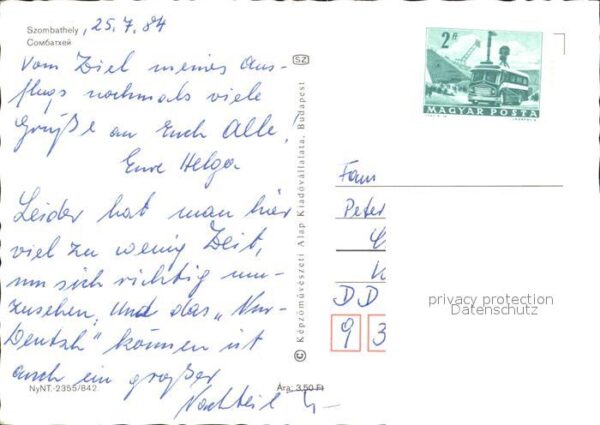 Szombathely, 25.7.84
Сомбатхей
Vom Ziel meines Aus-
flugs nochmals viele
Grüße an Euch Alle!
Eure Helga
Leider hat man hier
viel zu wenig Zeit,
um sich richtig um-
zusehen, und das „Nur-
Deutsch" können ist
auch ein großer
Nachteil
NyNT.-2355/842
Ára: 3,50 Ft
SZ
© Képzőművészeti Alap Kiadóvállalata, Budapest
2 Ft
MAGYAR POSTA
Fam
Peter
DD
9 3
privacy protection
Datenschutz